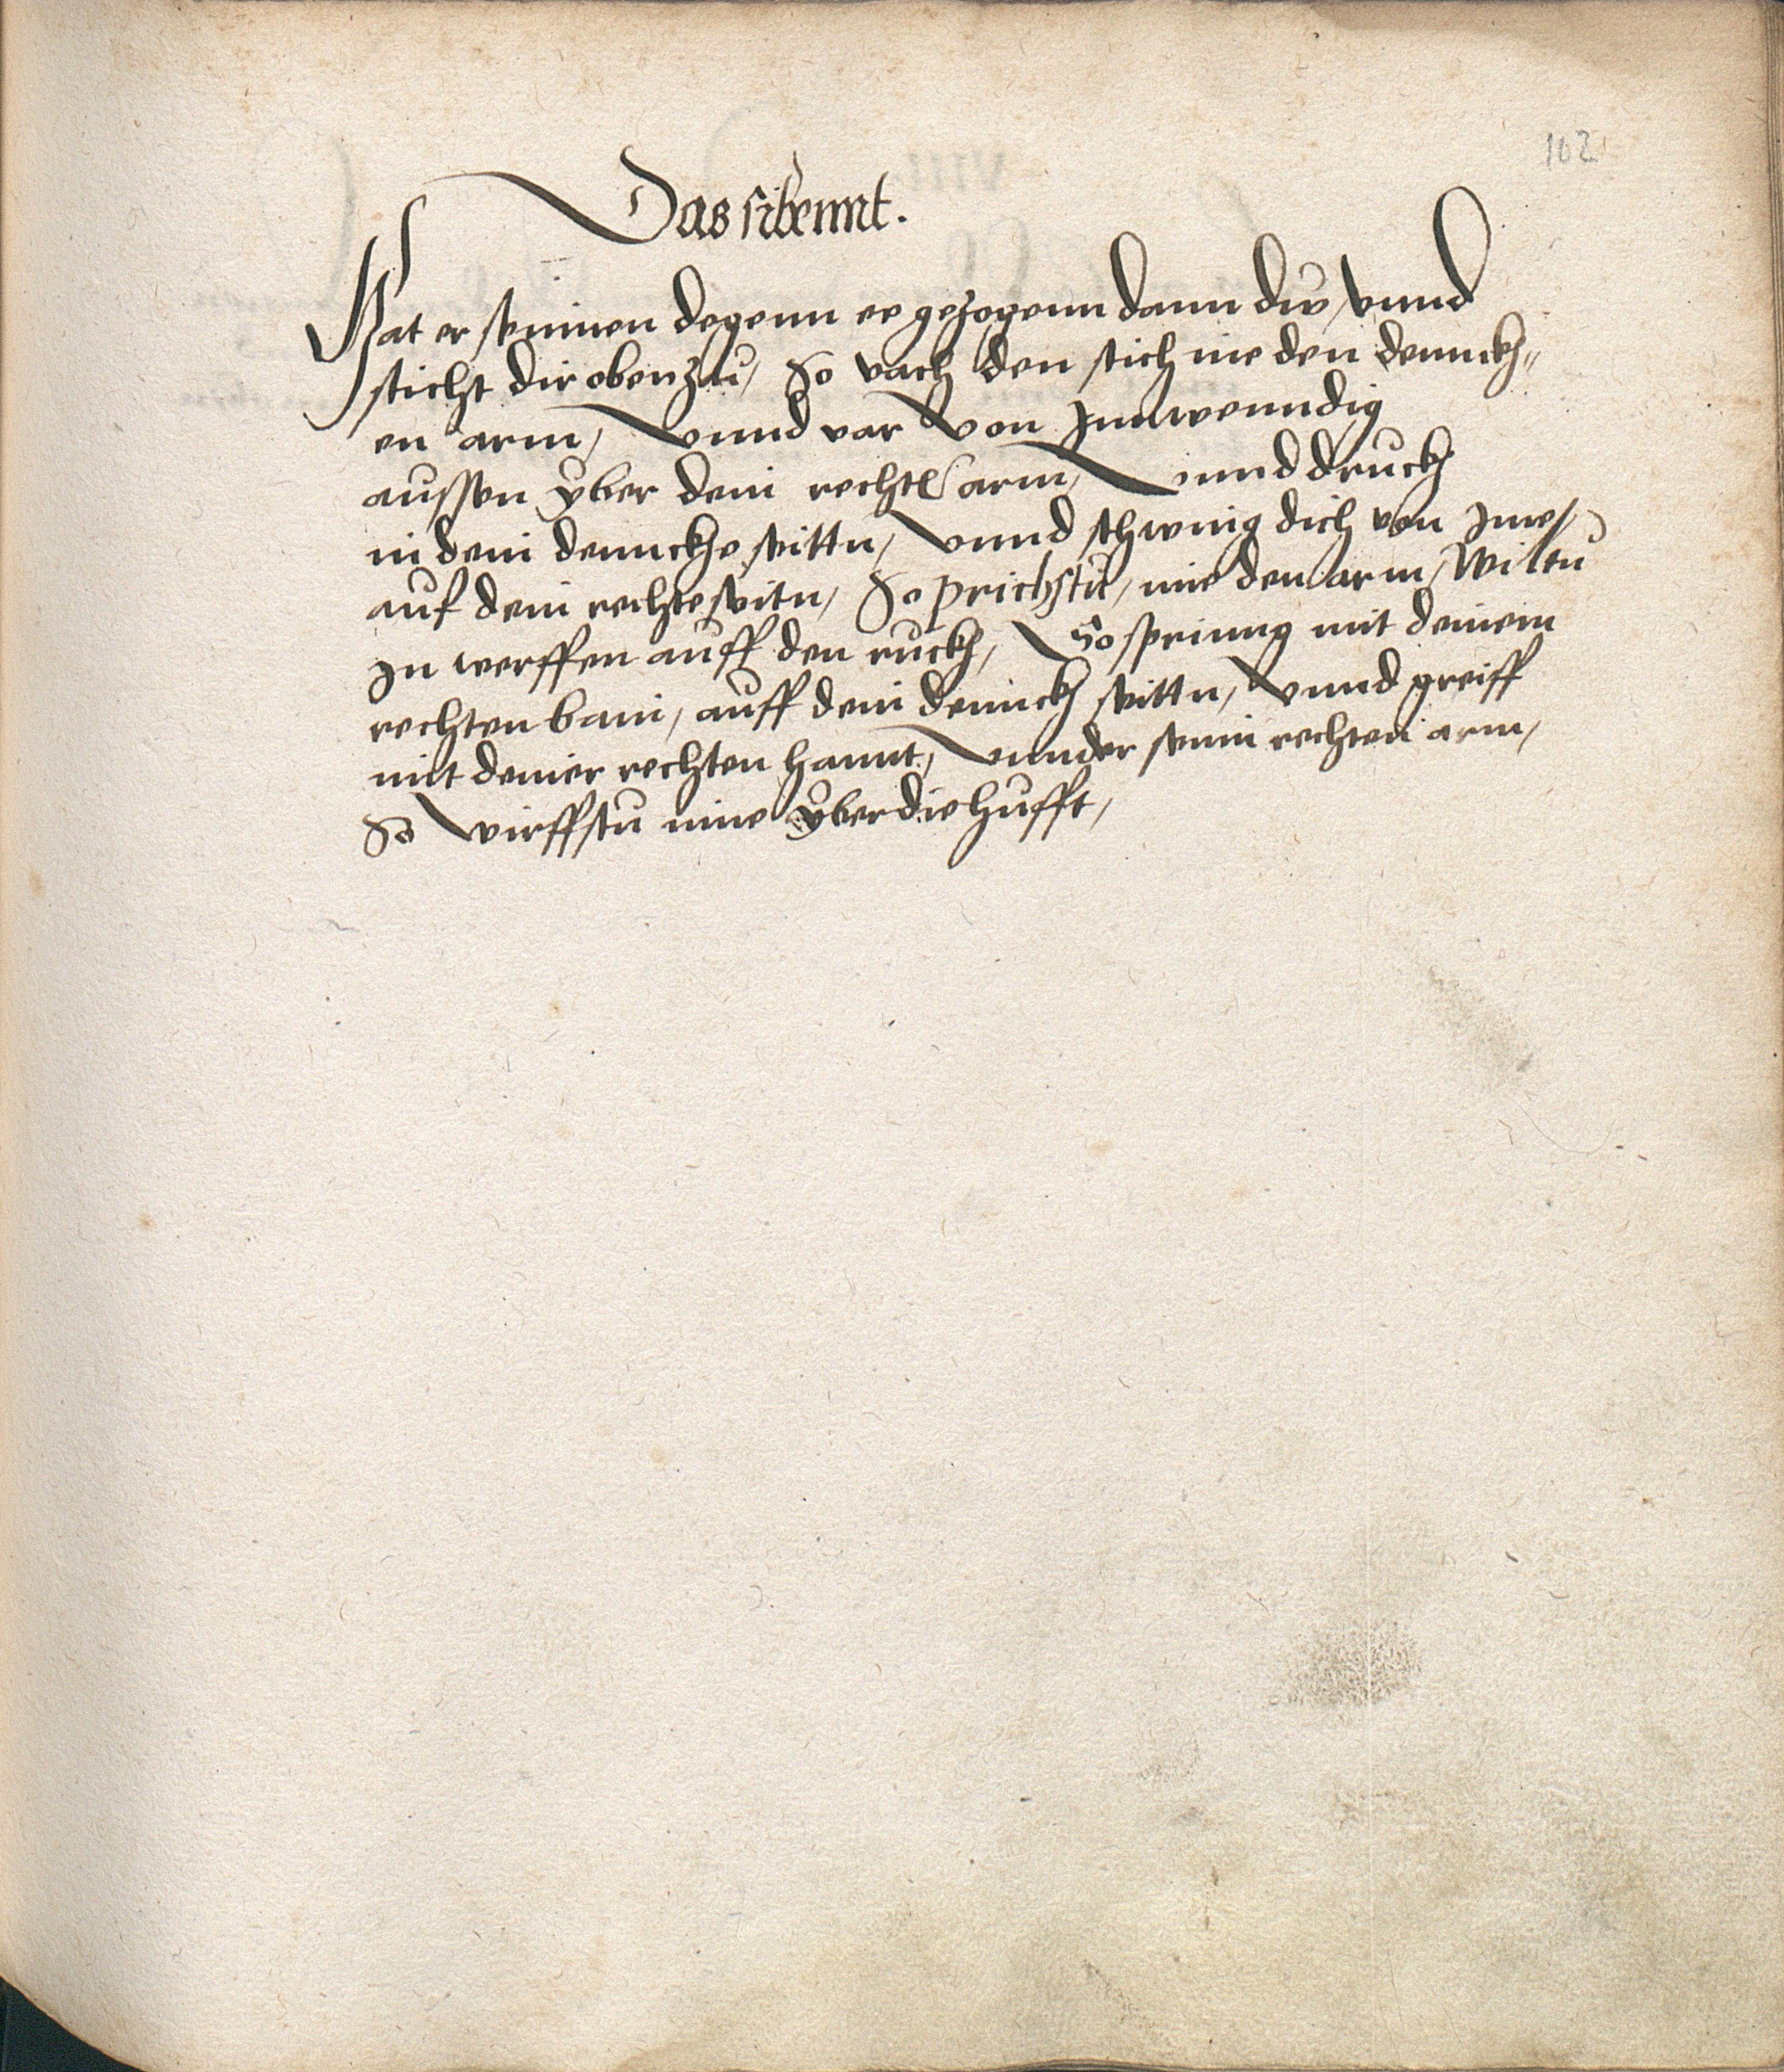 102
Das sibennt.
Hat er seinnen degenn ee gezogenn dann du / vnnd
sticht dir oben zu / So vach den stich ine den dennckh„
en arm / vnnd var von Innwenndig
aussen yber dein rechte arm / vnnd druckh
in dein denncke seittn / vnnd schwing dich von Ime /
auf dein rechte seitn / So prichstu / ime den arm / Wiltu
In werffen auff den ruckh / So sprinng mit deinem
rechten bain / auff dein dennckh seittn / vnnd greiff
mit deiner rechten hannt / vnnder seinn rechten arm /
So wirffstu ine yber die hufft /